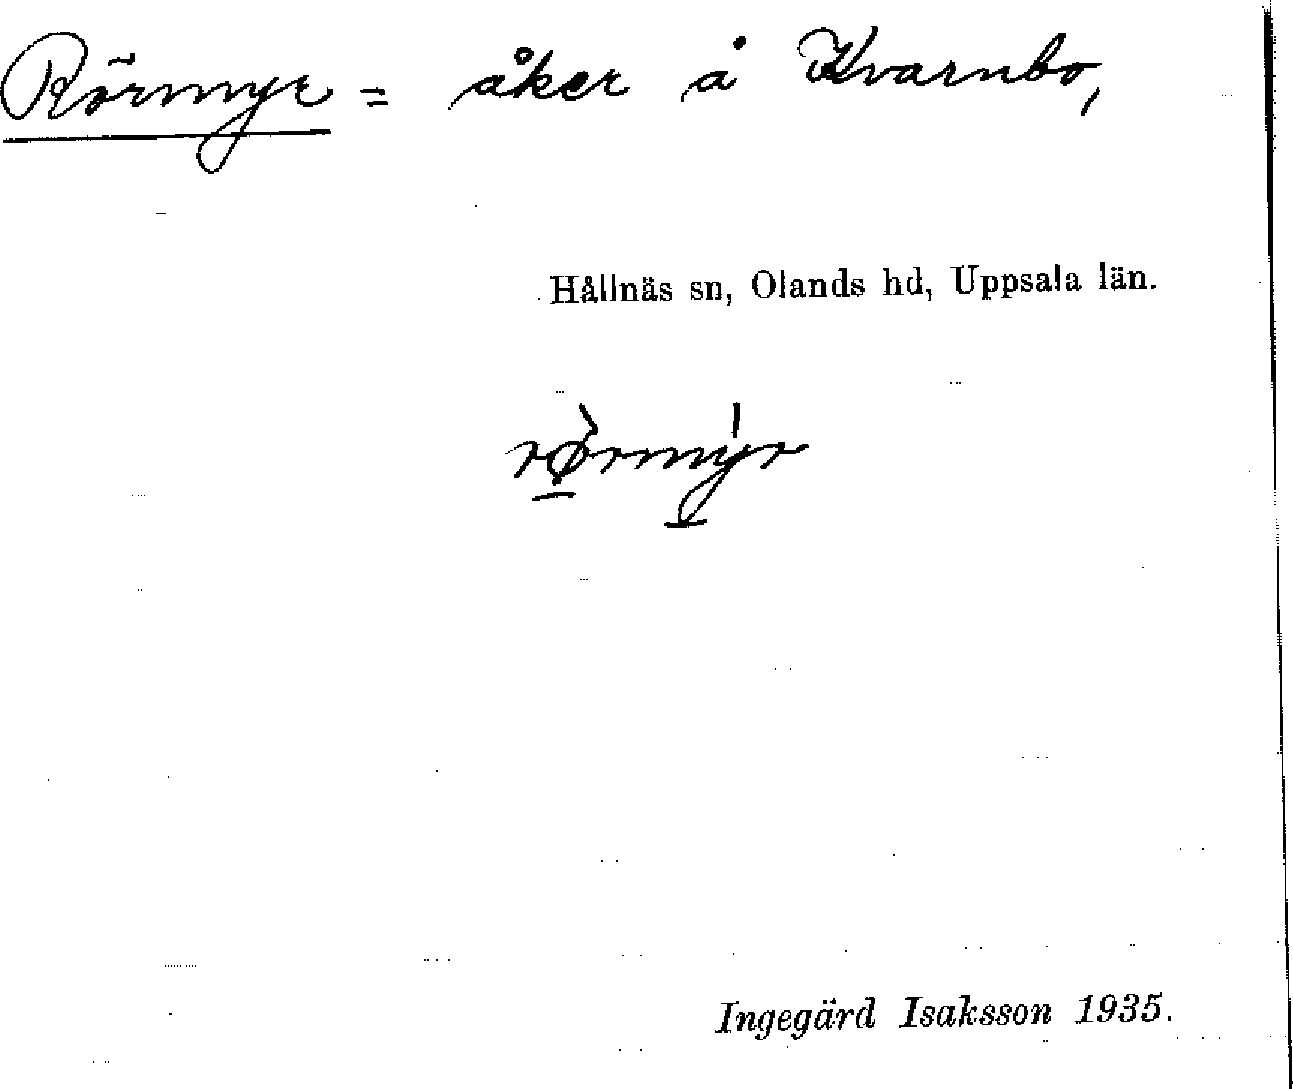 Rörmyr = åker å Kvarnbo,
Hållnäs sn, Olands hd, Uppsala län.
rø̀rmýr
Ingegärd Isaksson 1935.